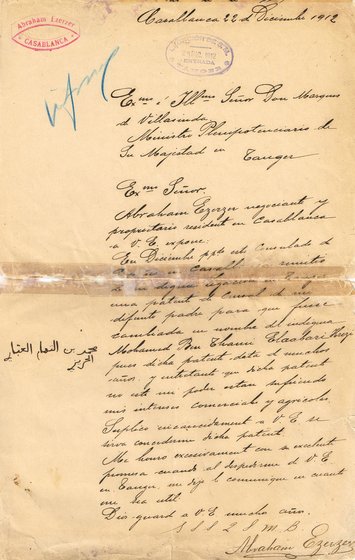 Abraham Ezerzer
CASABLANCA
Casablanca 22 de Diciembre 1912
ENTRADA
Exmo é Illmo Señor Don Marques
de Villasinda
Ministro Plenipotenciario de
Su Majestad en
Tanger
Exmo Señor.
Abraham Ezerzer negociante y
propietario resident en Casablanca
a V. E. expone:
En Diciembre ppto este Consulado de
en remitió
una patent de Consul de mi
defunto padre para que fuese
cambiada en nombre del indigena
Mohamed Ben Thami Elaabari
pues dicha patent data d muchos
años, y entretant que dicha patent
no esté un poder estan sufriendo
mis intereses comerciales y agricoles
Suplico encarecidamente a V. E se
sirva concederme dicha patent.
Me honro excesivamente con su excelent
promesa cuando al despedirme de V. E
en Tanger, me dijo le comunique en cuant
me sea util
Dios guard a V. E mucho años.
محمد بن
Abraham Ezerzer